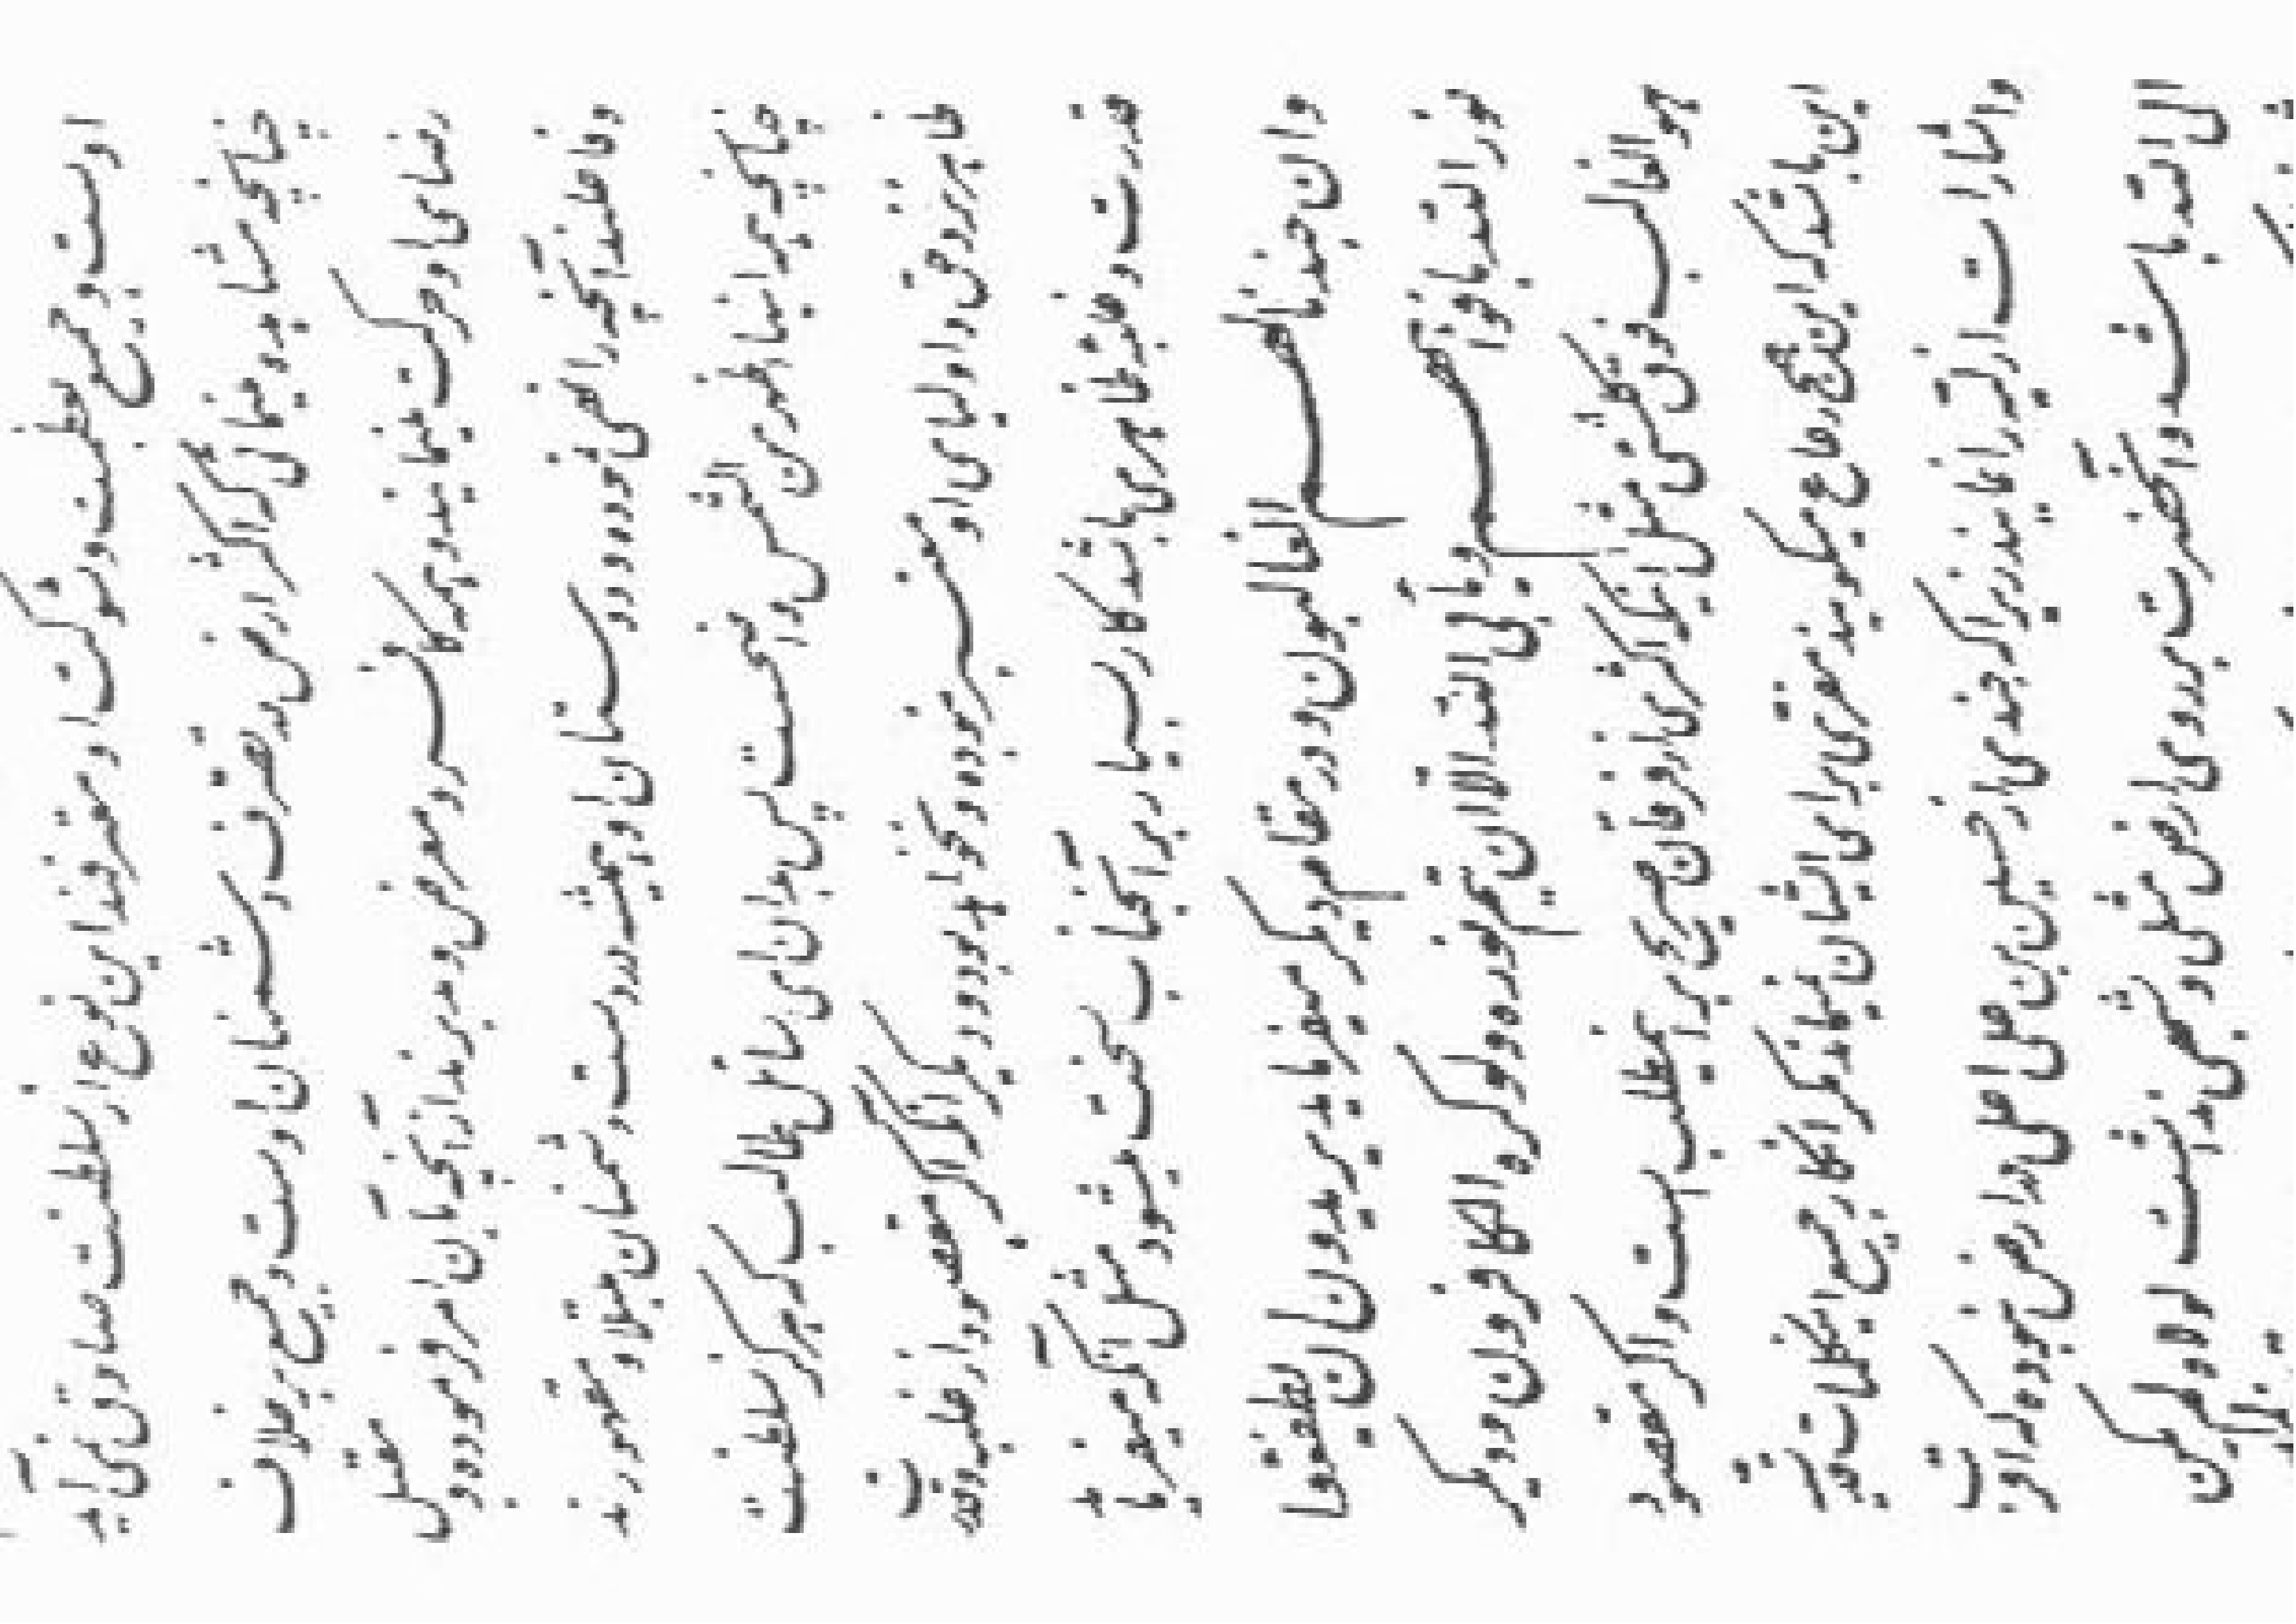 اوست و جمیع بعظمت و شوکت او معترفند این نوع از سلطنت صادق نمی آید
چنانچه مشاهده مینمائی که اکثر ارض در تصرف دشمنان اوست و جمیع بر خلاف
رضای او حرکت مینمایند و همه کافر و معرض و مدبرند از آنچه بآن امر فرموده و مقبل
و فاعلند آنچه را نهی فرموده و دوستان او همیشه در دست دشمنان مبتلا و مقهورند
چنانچه همه اینها اظهر من الشمس واضحست پس بدان ای سائل طالب که هرگز سلطنت
ظاهره نزد حق و اولیای او معتبر نبوده و نخواهد بود و دیگر آنکه اگر مقصود از غلبه و قدرت
قدرت و غلبه ظاهری باشد کار بسیار بر آنجناب سخت میشود مثل آنکه میفرماید
و ان جندنا لهم الغالبون و در مقام دیگر میفرماید یریدون ان یطفئوا
نور الله بافواههم و یأبی الله الا ان یتم نوره و لو کره الکافرون و دیگر
هو الغالب فوق کل شی مثل اینکه اکثری از فرقان صریح بر این مطلب است و اگر مقصود
این باشد که این همج رعاع میگویند مفری برای ایشان نمیماند مگر انکار جمیع این کلمات قدسیه
و اشارات ازلیه را نمایند زیرا که جندی از حسین بن علی اعلی در ارض نبوده که اقرب
الی الله باشد و آنحضرت بر روی ارض مثلی و شبهی نداشت لولاه لم یکن